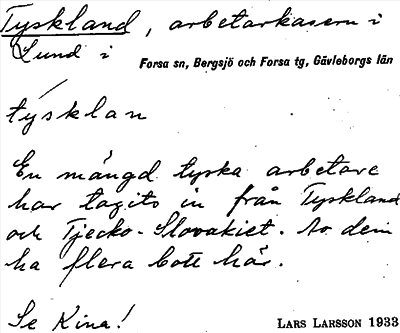 Tyskland, arbetarkasern i
Lund i Forsa sn, Bergsjö och Forsa tg, Gävleborgs län
týsklan
En mängd tyska arbetare
har tagits in från Tyskland
och Tjecko-Slovakiet. Av dem
ha flera bott här.
Se Kina!
LARS LARSSON 1933